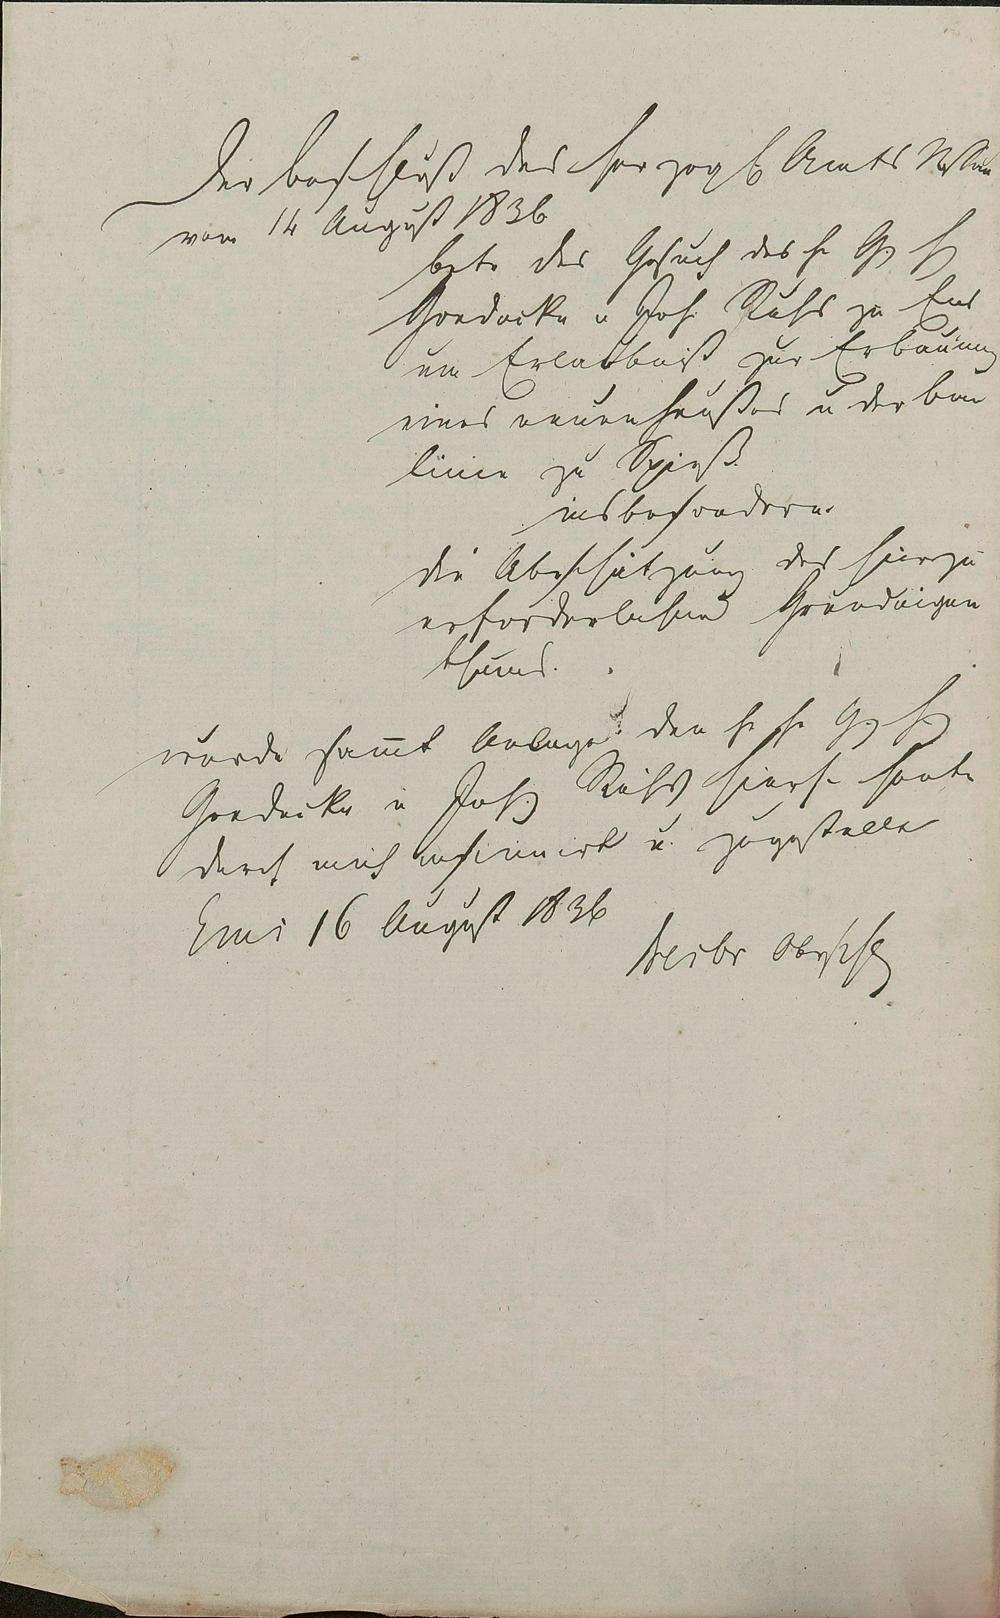 Der Beschluß des Herzogl Amts Nassau
vom 14 August 1836
betr das Gesuch des H G. H
Goedecke u Joh. Rühs zu Ems
um Erlaubniß zur Erbauung
eines neuen Haußes u der bau
linie zu Spieß
insbesondere
die Abschätzung des hierzu
erforderlichen Grundeigen
thums.
wurde sammt Anlage den H H G. H.
Goedecke u Joh. Rühs hier heute
durch mich insinuirt u. zugestellt
Ems 16 August 1836